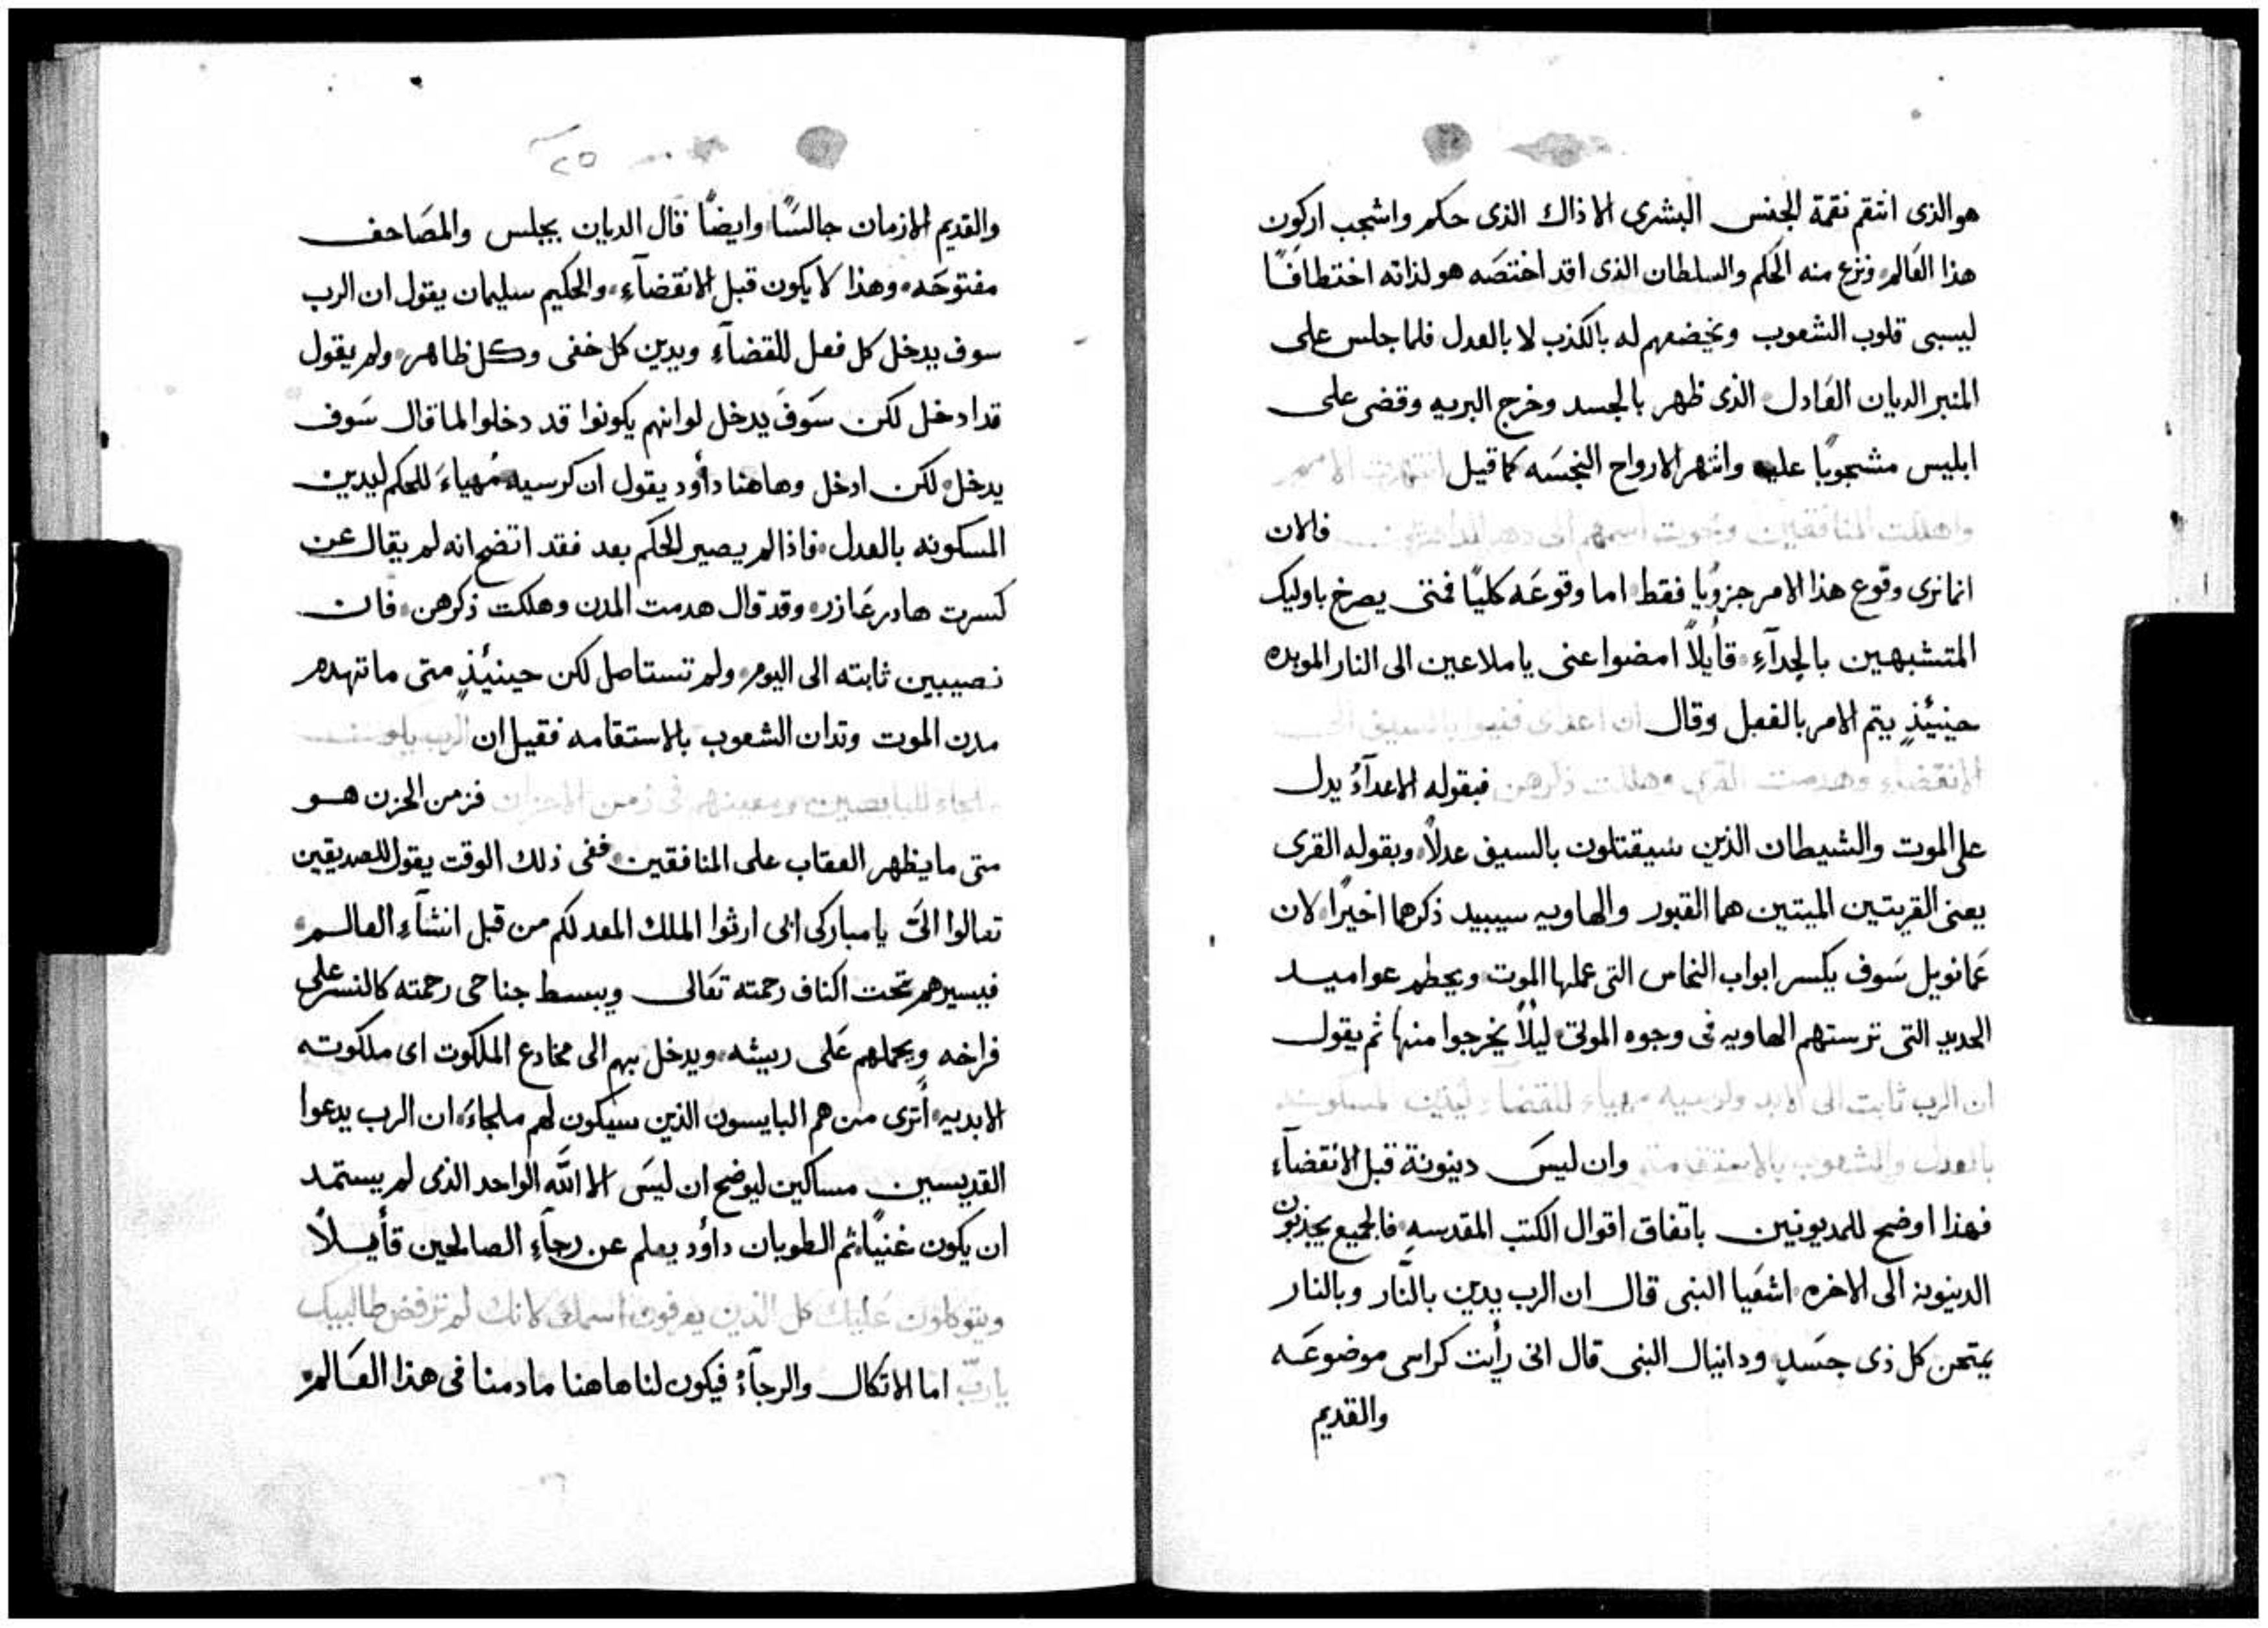 هو الذى انتقم نقمة الجنس البشرى الا ذاك الذى حكم واشجب اركون
هذا العَالم ونزع منه الحكم والسلطان الذى اقد اختصَه هو لذاته اختطافًا
ليسبى قلوب الشعوب ويخضعهم له بالكذب لا بالعدل فلما جلس على
المنبر الديان العَادل الذى ظهر بالجسد وخرج البريه وقضى على
ابليس مشجوبًا عليه وانتهر الارواح النجسَه كما قيل انتهرت الامم
واهلكت المنافقين ومحوت اسمهم الى دهر فالان
انما نرى وقوع هذا الامر جزويًا فقط اما وقوعَه كليًا فمتى يصرخ باوليك
المتشبهين بالجدآءِ قأيلاً امضوا عنى يا ملاعين الى النار الموبده
حينيئذٍ يتم الامر بالفعل وقال ان اعداى فنيوا بالسيف الى
الانقضاء وهدمت القرى وهلكت ذكرهن فبقوله الاعدآءُ يدل
على الموت والشيطان الذين سيقتلون بالسيف عدلاً وبقوله القرى
يعنى القريتين الميتين هما القبور والهاويه سيبيد ذكرهما اخيرًا لان
عَمانويل سَوف يكسر ابواب النحاس التى عملها الموت ويحطم عواميد
الحديد التى ترستهم الهاويه فى وجوه الموتى ليلاً يخرجوا منها ثم يقول
ان الرب ثابت الى الابد وكرسيه مهياء للقضاء ليدين المسكونه
بالعدل والشعوب بالاستقامة وان ليسَ دينونة قبل الانقضآءِ
فهذا اوضح للمديونين باتفاق اقوال الكتب المقدسهِ فالجميع يجذبون
الدينونه الى الاخره اشعَيا النبى قال ان الرب يدين بالنَّار وبالنار
يمتحن كل ذى جسَدٍ ودانيال النبى قال انى رأيت كراسى موضوعَه
والقديم
٢٥
والقديم الازمان جالسًا وايضًا قال الديان يجلس والمصَاحف
مفتوحَه وهذا لا يكون قبل الانقضآءِ والحكيم سليمان يقول ان الرب
سوف يدخل كل فعل للقضآءِ ويدين كل خفى وكل ظاهر ولم يقول
قد ادخل لكن سَوفَ يدخل لو انهم يكونوا قد دخلوا لما قال سَوف
يدخل لكن ادخل وهاهنا دأود يقول ان كرسيه مُهياءَ للحكم ليدين
المسكونه بالعدل فاذا لم يصير الحكم بعد فقد اتضح انه لم يقال عن
كسرت هادرعَازر وقد قال هدمت المدن وهلكت ذكرهن فان
نصيبين ثابته الى اليوم ولم تستاصل لكن حينيئذٍ متى ما تهدم
مدن الموت وتدان الشعوب بالاستقامه فقيل ان الرب يكون
ملجاء للبايسين ومعينهم فى زمن الاحزان فزمن الحزن هو
متى ما يظهر العقاب على المنافقين ففى ذلك الوقت يقول للصديقين
تعالوا الىَّ يا مباركى ابى ارثوا الملك المعد لكم من قبل انشآءِ العالم
فيسيرهم تحت اكناف رحمته تعَالى ويبسط جناحى رحمته كالنسر على
فراخه ويحملهم عَلى ريشه ويدخل بهم الى مخادع الملكوت اى ملكوته
الابديه أترى من هم البايسون الذين سيكون لهم ملجاءَ ان الرب يدعوا
القديسين مساكين ليوضح ان ليسَ الا اللّه الواحد الذى لم يستمد
ان يكون غنيًا ثم الطوبان دأود يعلم عن رجآءِ الصالحين قأيلاً
ويتوكلون عَليك كل الذين يعرفون اسمك لانك لم ترفض طالبيك
يا ربّ اما الاتكال والرجآءُ فيكون لنا هاهنا ما دمنا فى هذا العَالم